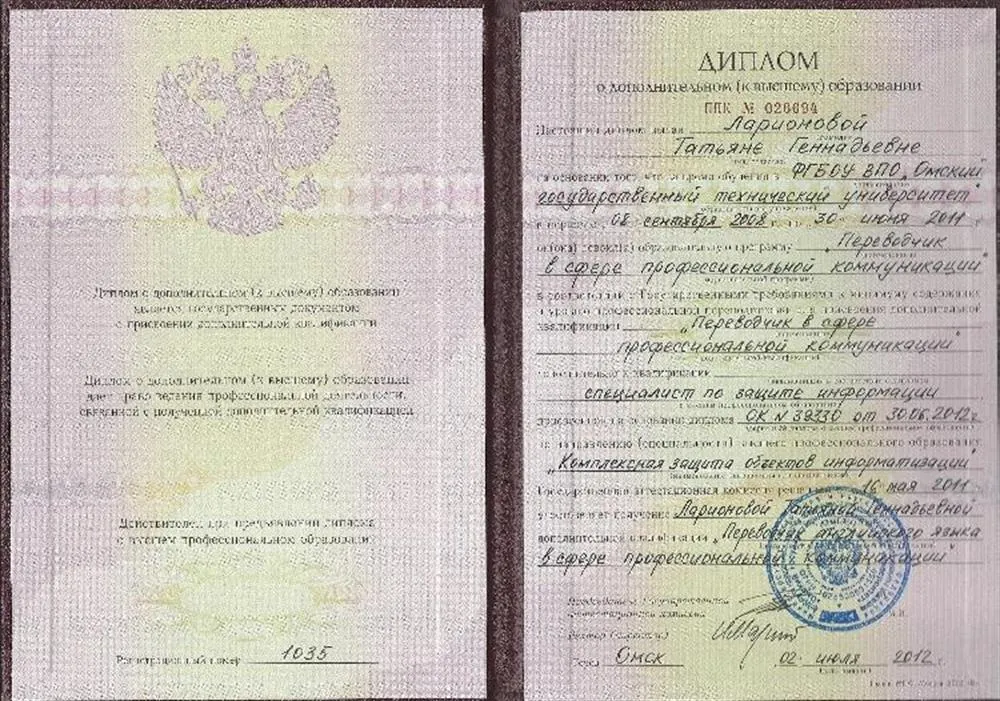 Диплом о дополнительном (к высшему) образовании
является государственным документом
о присвоении дополнительной квалификации
Диплом о дополнительном (к высшему) образовании
дает право ведения профессиональной деятельности,
связанной с полученной дополнительной квалификацией
Действителен при предъявлении диплома
о высшем профессиональном образовании
Регистрационный номер 1035
ДИПЛОМ
о дополнительном (к высшему) образовании
ППК № 026694
Настоящий диплом выдан Ларионовой
Татьяне Геннадьевне
на основании того, что за время обучения в ФГБОУ ВПО „Омский
государственный технический университет"
в период с 08 сентября 2008 г. по 30 июня 2011
освоил(а) образовательную программу „Переводчик
в сфере профессиональной коммуникации"
в соответствии с Государственными требованиями к минимуму содержания
дополнительной
квалификации „Переводчик в сфере
профессиональной коммуникации"
квалификации
специалист по защите информации
на основании диплома ОК № 39330 от 30.06.2012г.
по направлению (специальности) высшего профессионального образования
„Комплексная защита объектов информатизации"
Государственная аттестационная комиссия 16 мая 2011
Ларионовой Татьяной Геннадьевной
дополнительной квалификации „Переводчик английского языка
в сфере профессиональной коммуникации"
Председатель Государственной
аттестационной комиссии
Ректор
Город Омск 02 июля 2012 г.